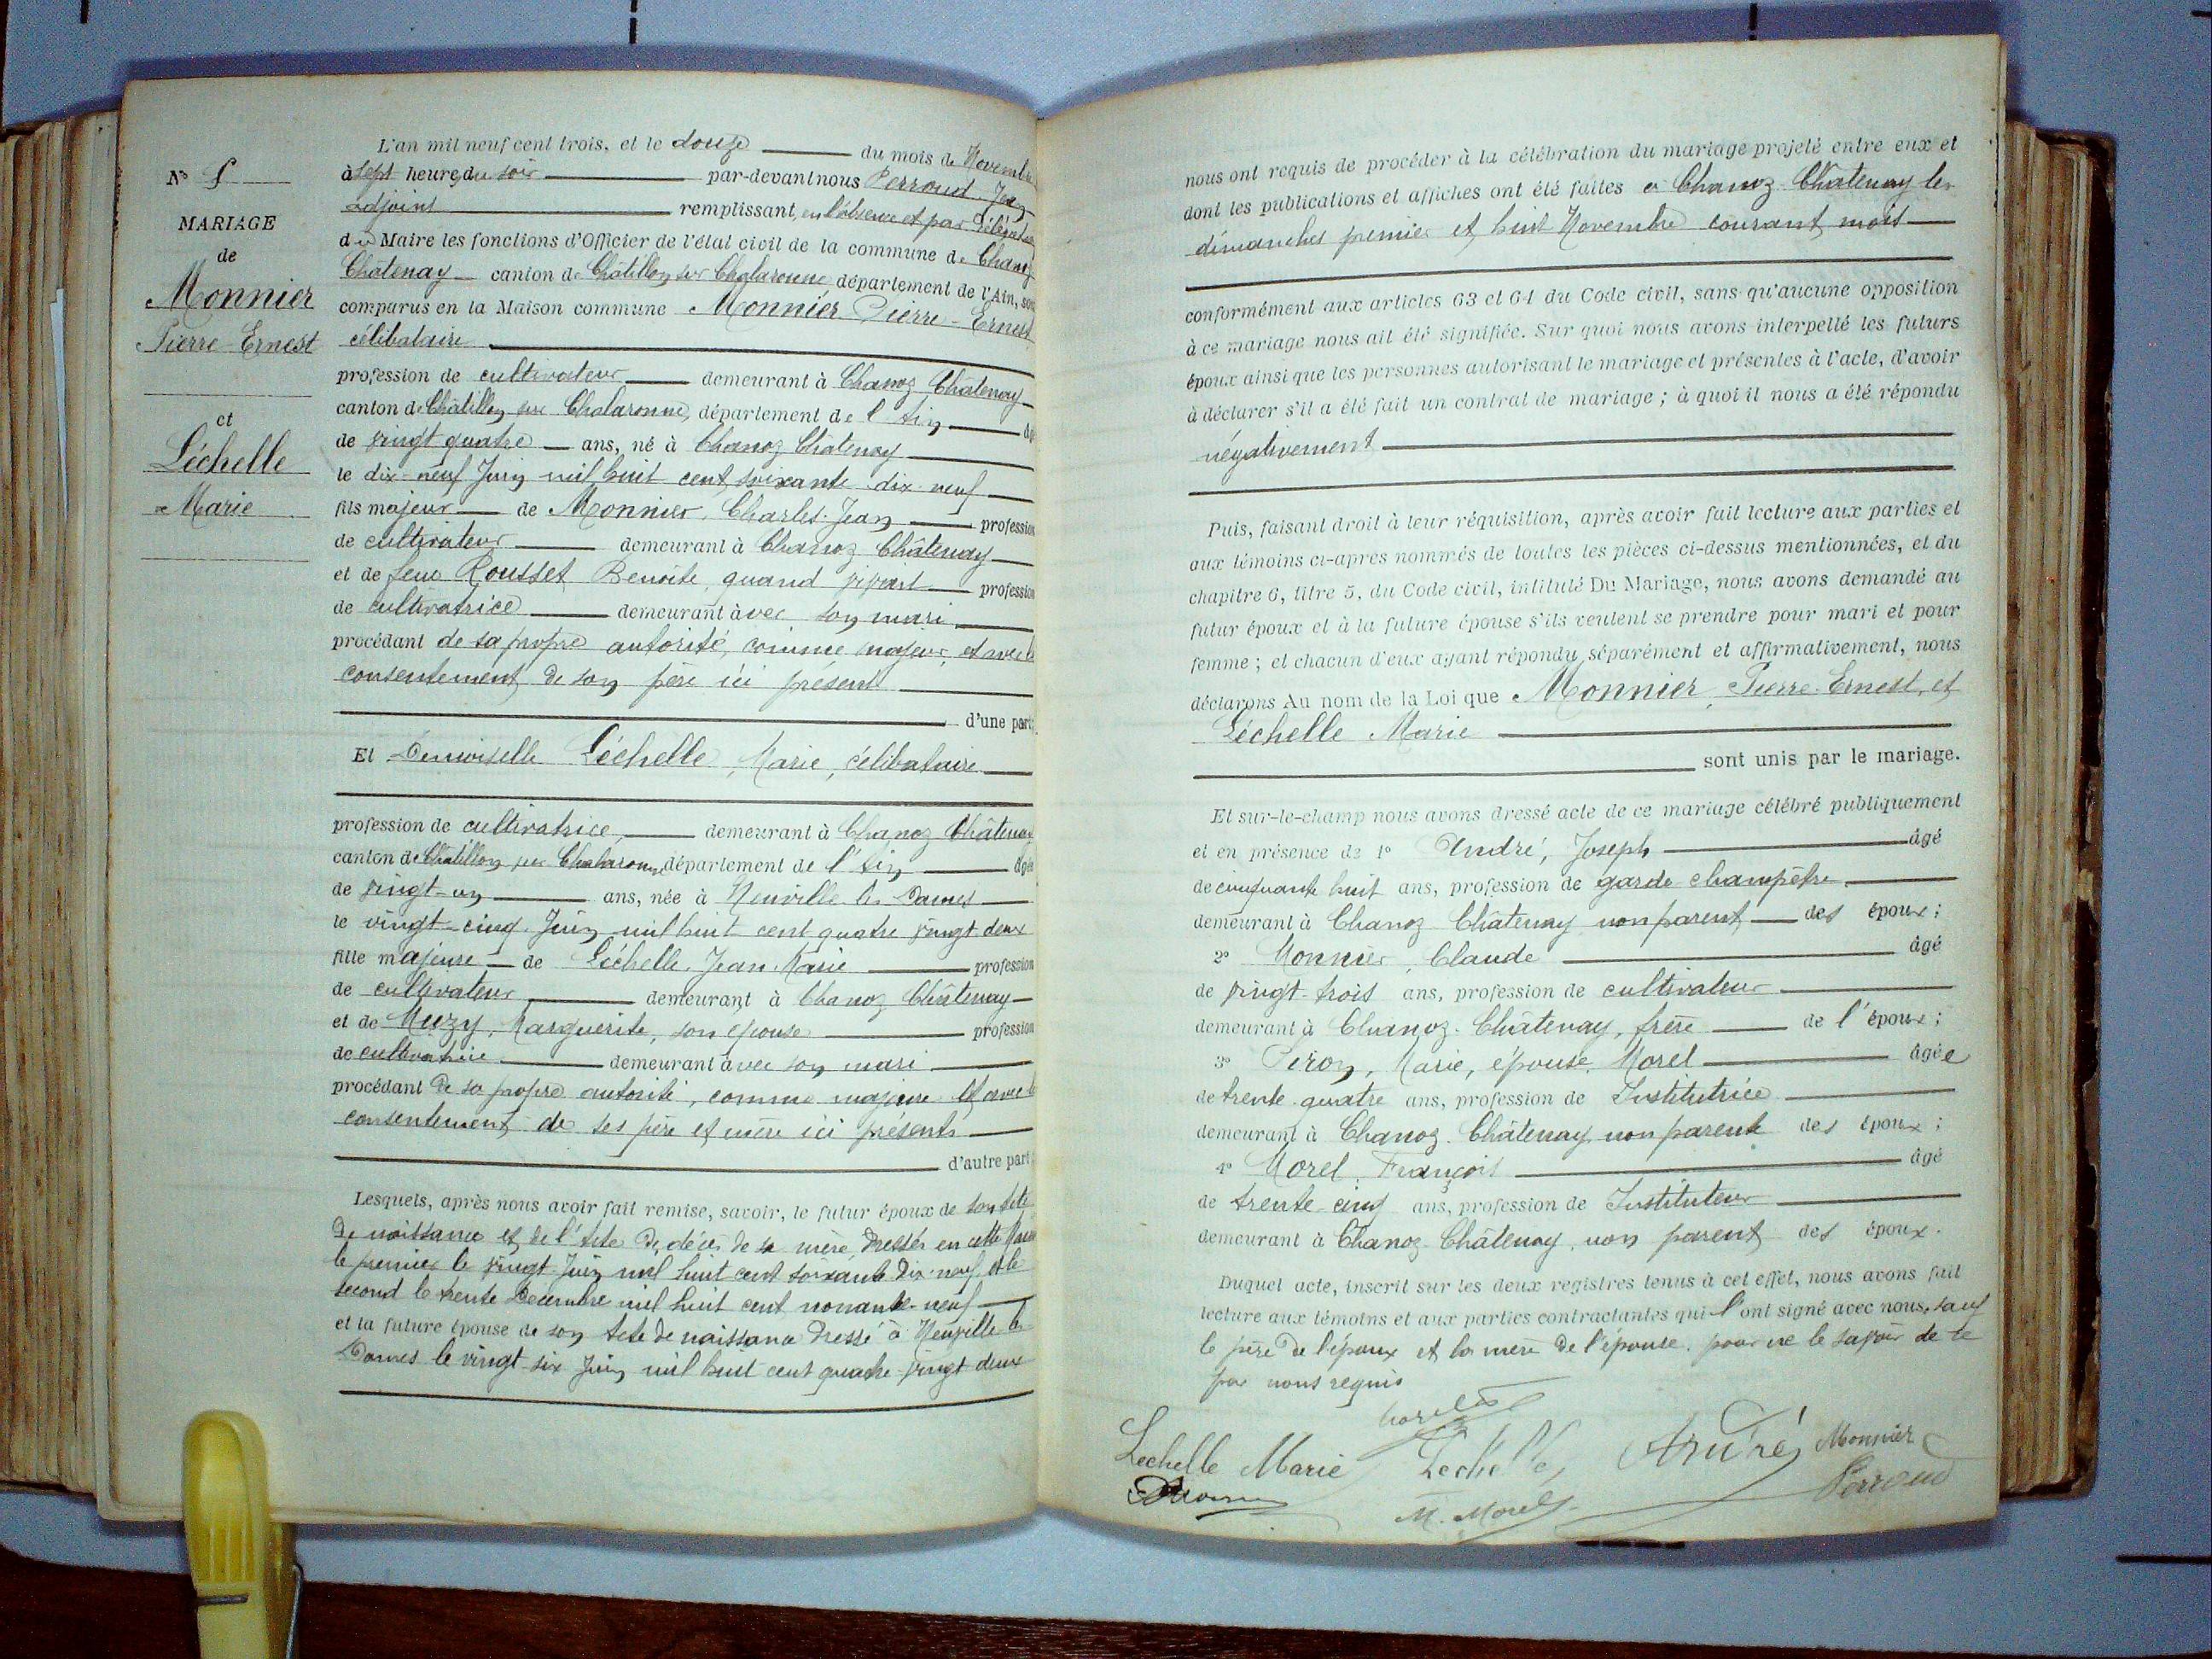 L'an mil neuf cent trois, et le douze du mois de Novembre
à sept heures du soir par-devant nous Perroud Jean
Adjoint remplissant, en l'absence et par Délégation
du Maire les fonctions d'Officier de l'état civil de la commune de Chanoz
Châtenay canton de Châtillon sur Chalaronne département de l'Ain, sont
comparus en la Maison commune Monnier Pierre-Ernest
célibataire
profession de cultivateur demeurant à Chanoz Châtenay
canton de Châtillon sur Chalaronne, département de l'Ain âgé
de vingt quatre ans, né à Chanoz Châtenay
le dix-neuf Juin mil huit cent soixante dix neuf
fils majeur de Monnier, Charles-Jean profession
de cultivateur demeurant à Chanoz Châtenay
et de feue Rousset Benoîte, quand vivait profession
de cultivatrice demeurant avec son mari
procédant de sa propre autorité, comme majeur, et avec le
consentement de son père ici présent
d'une part
Et Demoiselle Léchelle, Marie, célibataire
profession de cultivatrice, demeurant à Chanoz Châtenay
canton de Châtillon sur Chalaronne département de l'Ain âgée
de vingt-un ans, née à Neuville les Dames
le vingt-cinq Juin mil huit cent quatre vingt deux
fille majeure de Léchelle, Jean-Marie profession
de cultivateur demeurant à Chanoz Châtenay
et de Muzy, Marguerite, son épouse profession
de cultivatrice demeurant avec son mari
procédant de sa propre autorité, comme majeure et avec le
consentement de ses père et mère ici présents
d'autre part
Lesquels, après nous avoir fait remise, savoir, le futur époux de son acte
de naissance et de l'acte de décès de sa mère, dressés en cette Mairie
le premier le vingt Juin mil huit cent soixante dix-neuf et le
second le trente Décembre mil huit cent nonante-neuf
et la future épouse de son acte de naissance dressé à Neuville les
Dames le vingt-six Juin mil huit cent quatre-vingt deux
No
MARIAGE
de
Monnier
Pierre-Ernest
et
Léchelle
Marie
nous ont requis de procéder à la célébration du mariage projeté entre eux et
dont les publications et affiches ont été faites à Chanoz Châtenay les
dimanches premier et huit Novembre courant mois
conformément aux articles 63 et 64 du Code civil, sans qu'aucune opposition
à ce mariage nous ait été signifiée. Sur quoi nous avons interpellé les futurs
époux ainsi que les personnes autorisant le mariage et présentes à l'acte, d'avoir
à déclarer s'il a été fait un contrat de mariage ; à quoi il nous a été répondu
négativement
Puis, faisant droit à leur réquisition, après avoir fait lecture aux parties et
aux témoins ci-après nommés de toutes les pièces ci-dessus mentionnées, et du
chapitre 6, titre 5, du Code civil, intitulé Du Mariage, nous avons demandé au
futur époux et à la future épouse s'ils veulent se prendre pour mari et pour
femme ; et chacun d'eux ayant répondu séparément et affirmativement, nous
déclarons Au nom de la Loi que Monnier, Pierre-Ernest, et
Léchelle Marie
sont unis par le mariage.
Et sur-le-champ nous avons dressé acte de ce mariage célébré publiquement
et en présence de 1° André, Joseph âgé
de cinquante huit ans, profession de garde champêtre
demeurant à Chanoz Châtenay non parent des époux ;
2° Monnier, Claude âgé
de vingt-trois ans, profession de cultivateur
demeurant à Chanoz-Châtenay, frère de l'époux ;
3° Piron, Marie, épouse Morel âgée
de trente quatre ans, profession de Institutrice
demeurant à Chanoz-Châtenay, non parente des époux ;
4° Morel, François âgé
de trente-cinq ans, profession de Instituteur
demeurant à Chanoz-Châtenay, non parent des époux.
Duquel acte, inscrit sur les deux registres tenus à cet effet, nous avons fait
lecture aux témoins et aux parties contractantes qui l'ont signé avec nous, sauf
le père de l'époux et la mère de l'épouse, pour ne le savoir de ce
par nous requis
Lechelle Marie Lechelle André Monnier
M. Morel Perroud